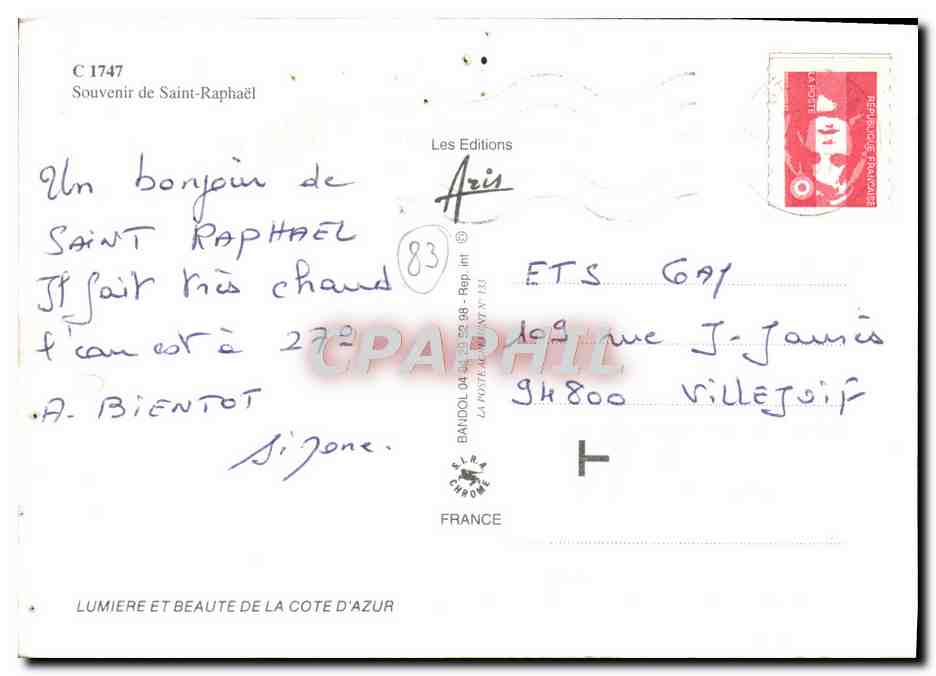 C 1747
Souvenir de Saint-Raphaël
Un bonjour de
SAINT RAPHAEL
Il fait très chaud
l'eau est à 27°
A. BIENTOT
83
Les Editions
Aris
BANDOL 04 04 29 52 98 - Rep. int ©
LA POSTE AGREMENT N° 133
S.I.R.A.
CHROME
FRANCE
REPUBLIQUE FRANCAISE
LA POSTE
ETS GAY
109 rue J-Jaurès
94800 VILLEJUIF
T
LUMIERE ET BEAUTE DE LA COTE D'AZUR
CPAPHIL